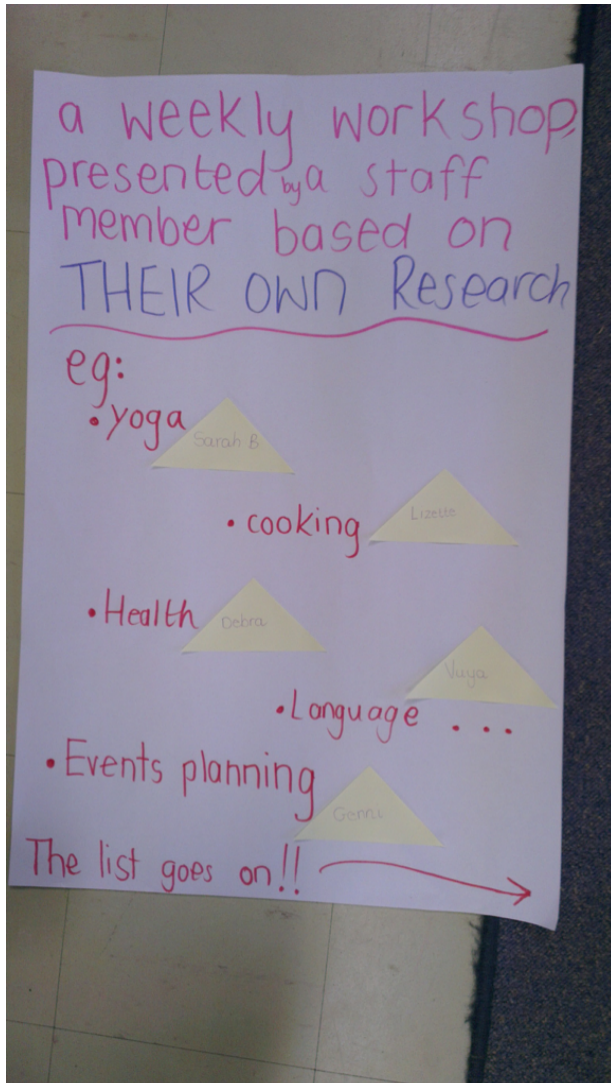 a weekly workshop,
presented by a staff
member based on
THEIR OWN Research
eg:
• yoga
Sarah B
• cooking
Lizette
• Health
Debra
Vuya
• Language ...
• Events planning
The list goes on!!